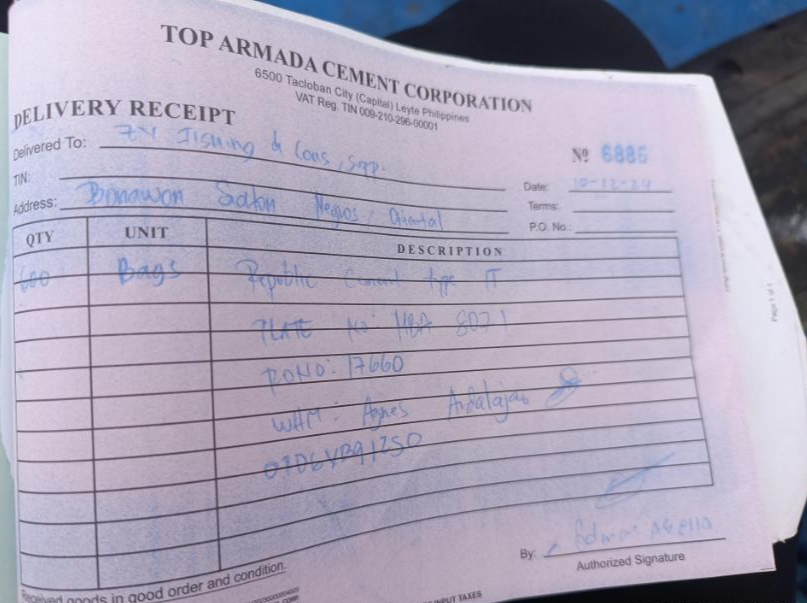 TOP ARMADA CEMENT CORPORATION
6500 Tacloban City (Capital) Leyte Philippines
VAT Reg. TIN 009-210-296-00001
DELIVERY RECEIPT
Nº 6886
Delivered To: Fishing & Cons, Supp.
Date: 10-12-24
TIN:
Terms:
Address: Negos, Oriental
P.O. No.:
QTY UNIT DESCRIPTION
600 Bags Republic Cement type IT
PLATE No: MBA 8021
PONO: 17660
WHM: Agnes
By: Authorized Signature
Received goods in good order and condition.
INPUT TAXES